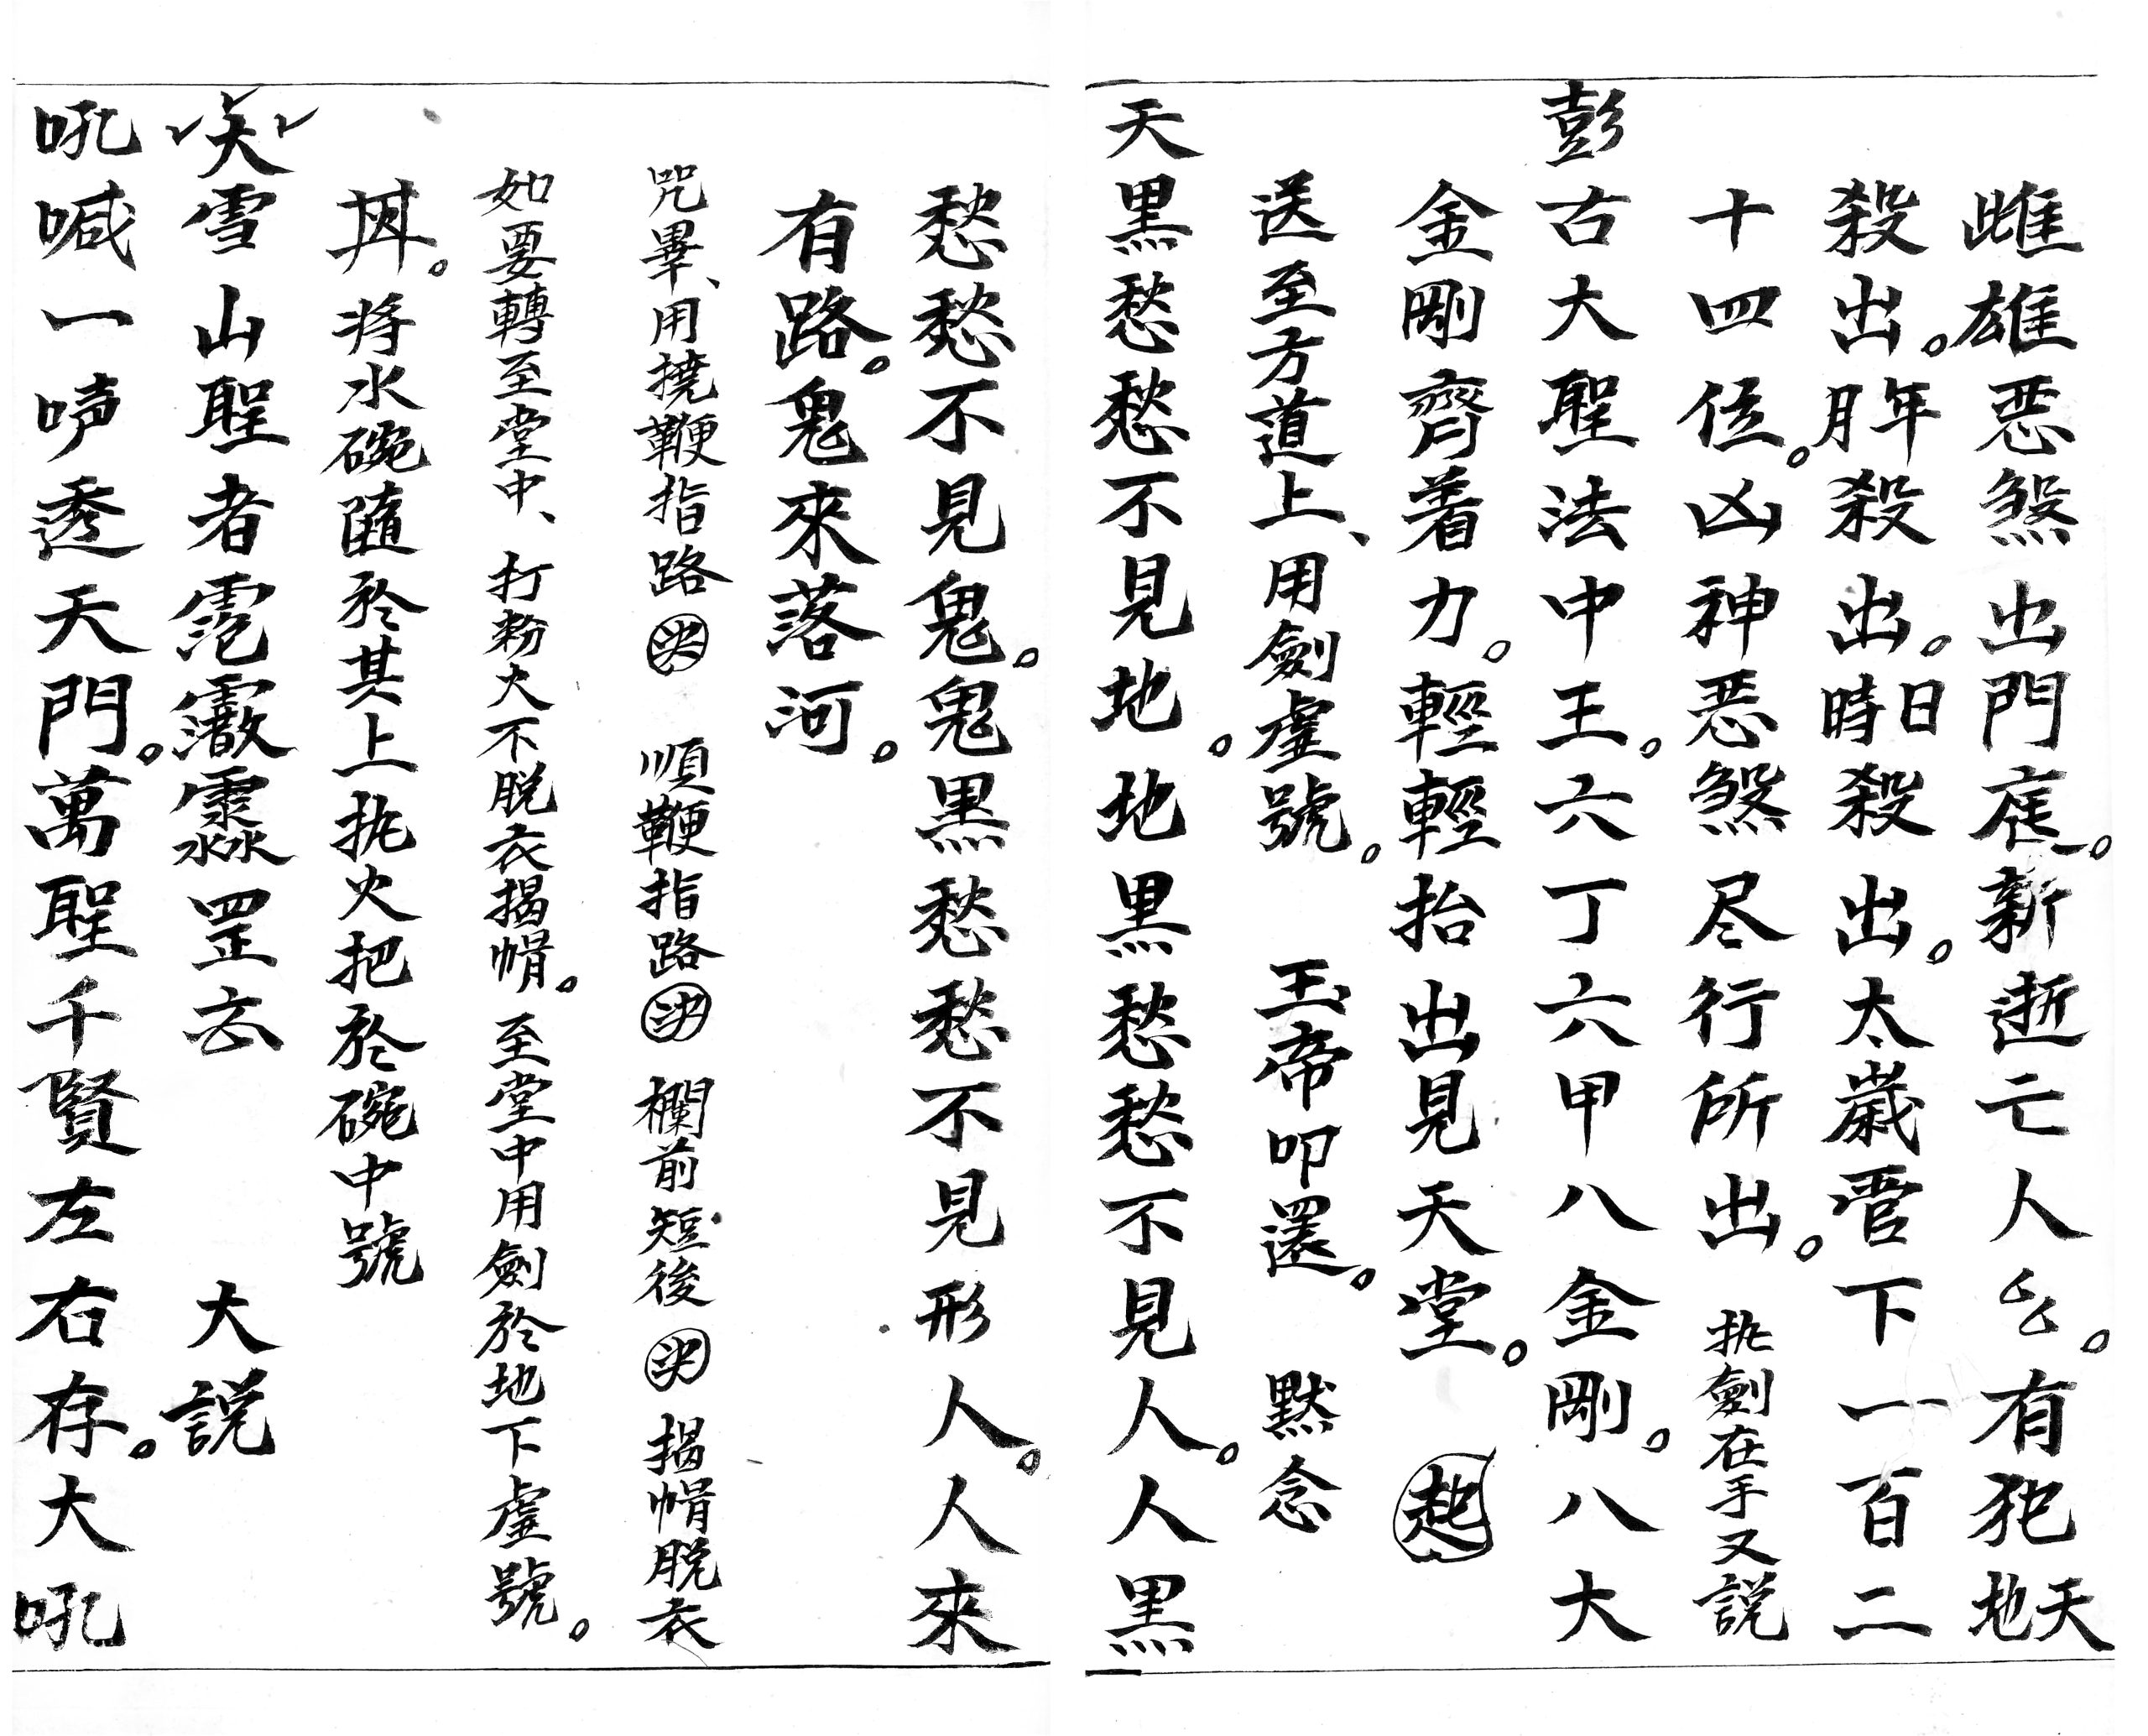 雌雄恶煞出門庭。新逝亡人么。有犯天地
殺出。年月殺出。日時殺出。太歲管下一百二
十四位。凶神恶煞尽行所出。执劍在手又説
彭古大聖法中王。六丁六甲八金剛。八大
金剛齊着力。輕輕抬出見天堂。起
送至方道上、用劍虛號。玉帝叩還。默念
天黑愁愁不見地。地黑愁愁不見人。人黑
愁愁不見鬼。鬼黑愁愁不見形人。人來
有路。鬼來落河。
咒畢、用撓鞭指路 順鞭指路 欄前短後 揭帽脱衣
如要轉至堂中、打粉火不脱衣揭帽。至堂中用劍於地下虛號。
将水碗隨於其上执火把於碗中號
雪山聖者罡云 大説
吼喊一声透天門。萬聖千賢左右存。大吼